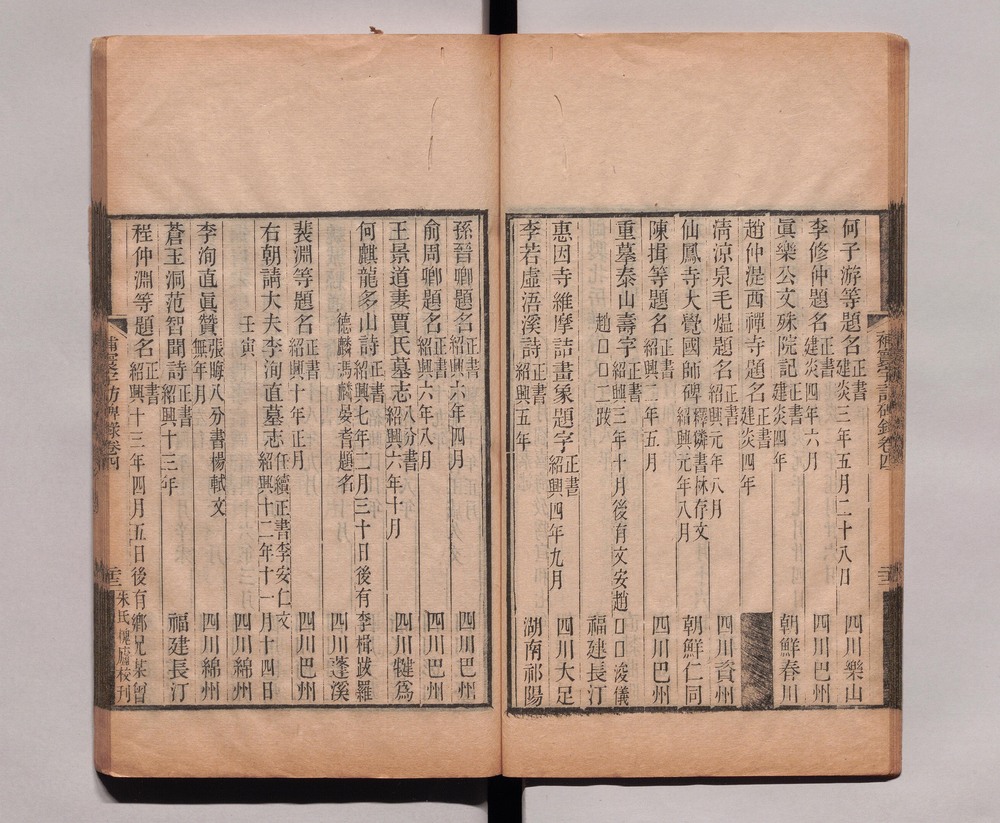 何子游等題名正書建炎三年五月二十八日 四川樂山
李修仲題名正書建炎四年六月 四川巴州
眞樂公文殊院記正書建炎四年 朝鮮春川
趙仲湜西禪寺題名正書建炎四年
清涼泉毛熅題名正書紹興元年八月 四川資州
仙鳳寺大覺國師碑釋僯書林存文紹興元年八月 朝鮮仁同
陳揖等題名正書紹興二年五月 四川巴州
重摹泰山壽字正書紹興三年十月後有文安趙□□浚儀
趙□□二跋 福建長汀
惠因寺維摩詰畫象題字正書紹興四年九月 四川大足
李若虛浯溪詩正書紹興五年 湖南祁陽
孫晉卿題名正書紹興六年四月 四川巴州
俞周卿題名正書紹興六年八月 四川巴州
王景道妻賈氏墓志八分書紹興六年十月 四川犍爲
何麒龍多山詩正書紹興七年二月三十日後有李楫跋羅
德麟馮麟晏耆題名 四川蓬溪
裴淵等題名正書紹興十年正月 四川巴州
右朝請大夫李洵直墓志任續正書李安仁文紹興十二年十一月十四日
壬寅 四川綿州
李洵直眞贊張晦八分書楊軾文無年月 四川綿州
蒼玉洞范智聞詩正書紹興十三年 福建長汀
程仲淵等題名正書紹興十三年四月五日後有鄉兄某曾
補寰宇訪碑錄卷四
二十三
朱氏槐廬校刊